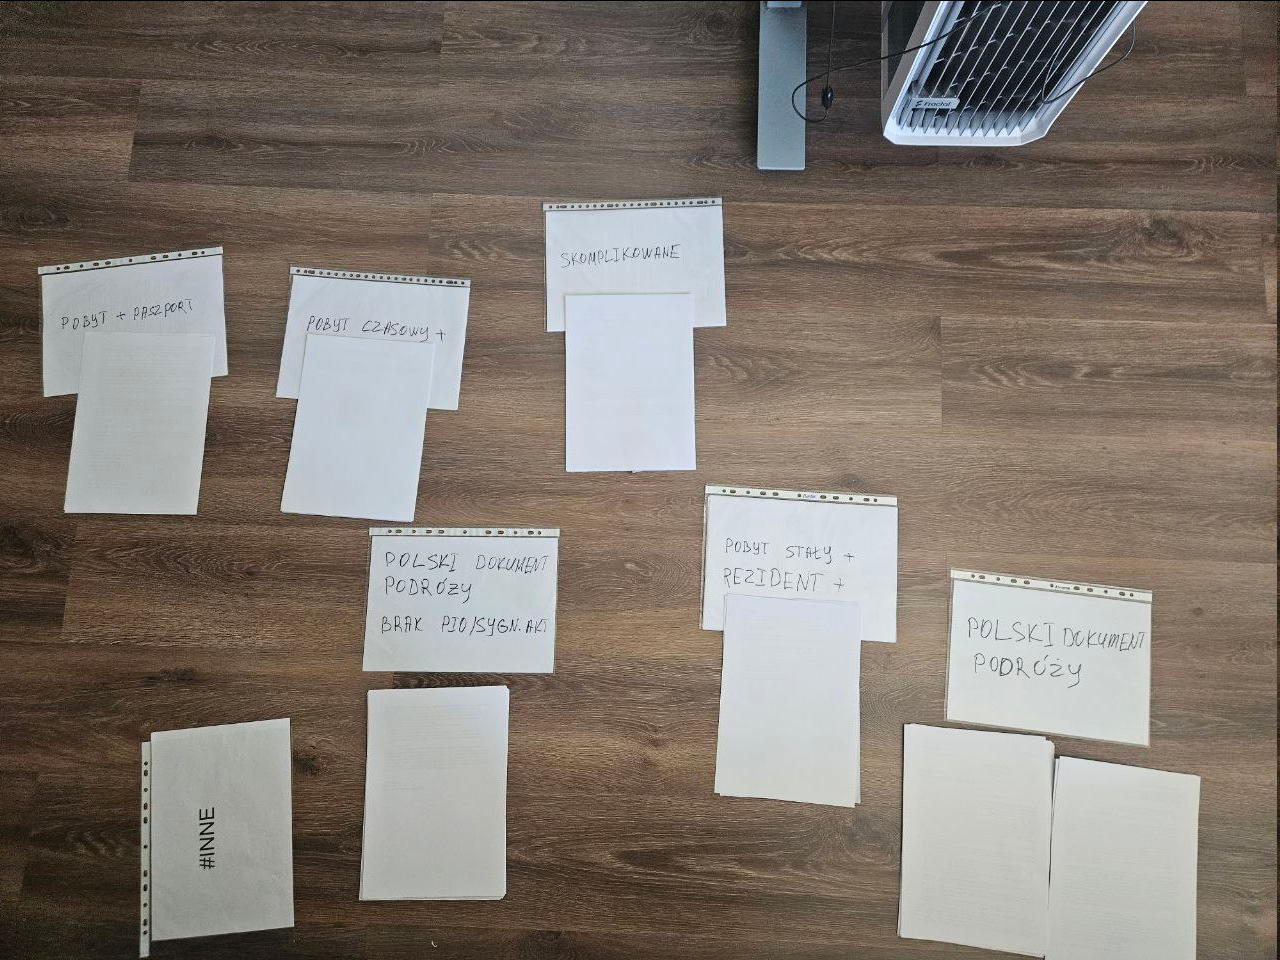 Fractal
SKOMPLIKOWANE
POBYT + PASZPORT
POBYT CZASOWY +
POLSKI DOKUMENT
PODRÓŻY
BRAK PIO/SYGN. AKT
POBYT STAŁY +
REZIDENT +
POLSKI DOKUMENT
PODRÓŻY
#INNE